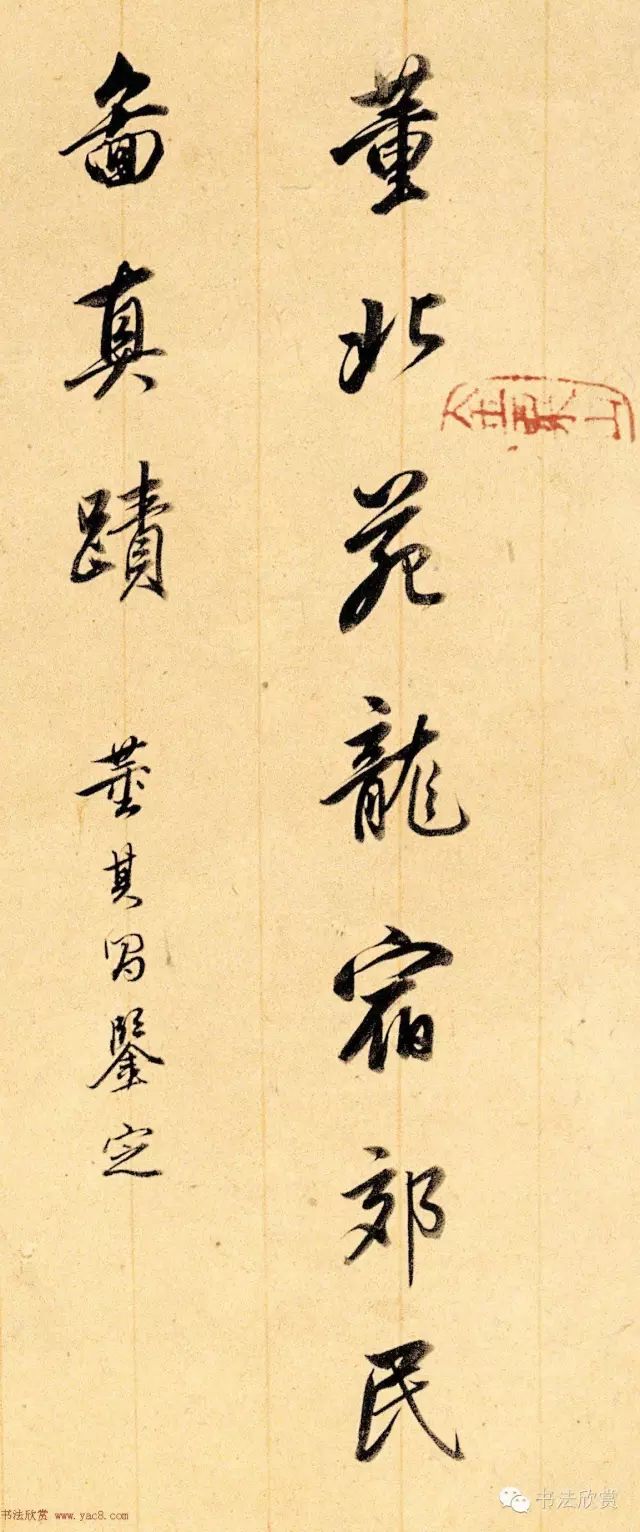 董北苑龍宿郊民
啚真蹟
董其昌鑒定
书法欣赏 www.yac8.com
书法欣赏